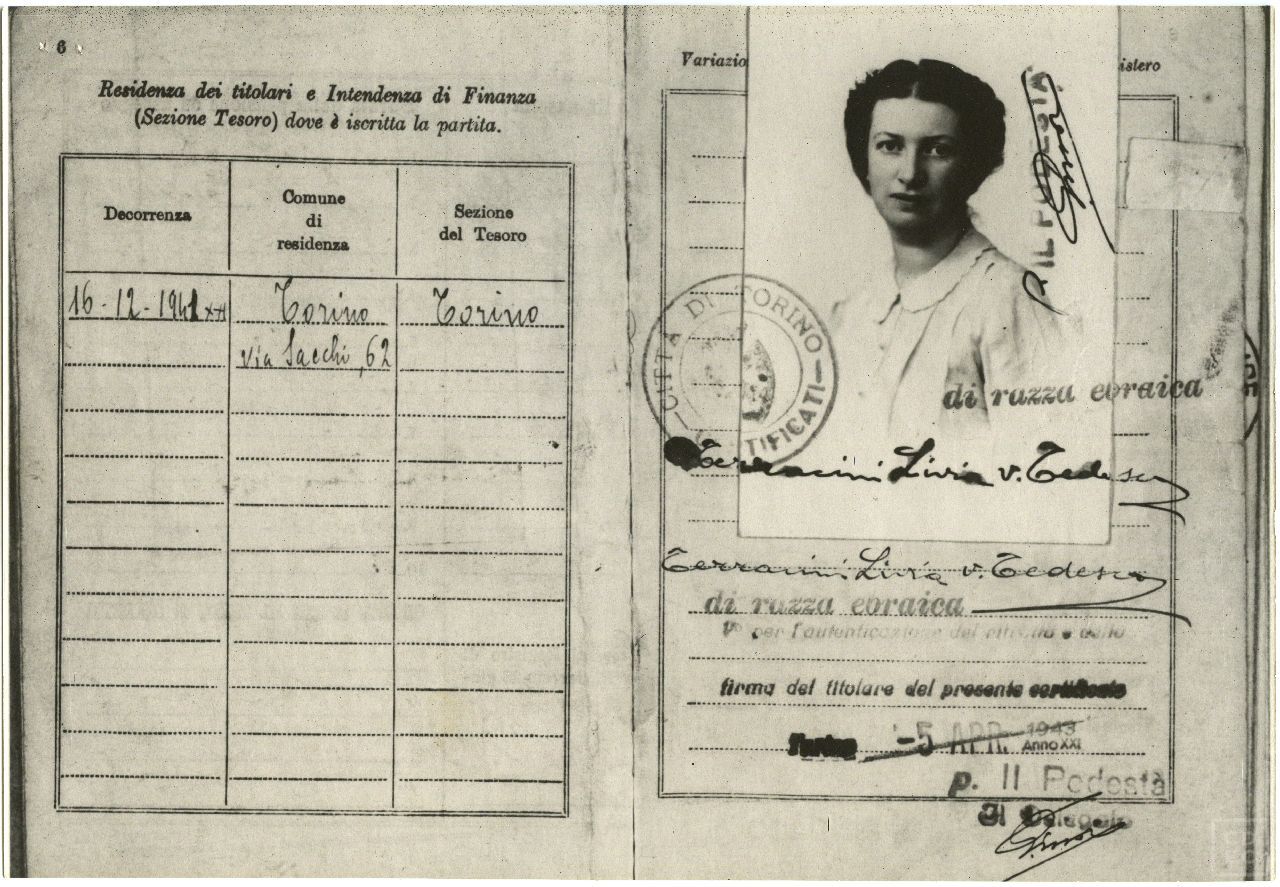 6
Residenza dei titolari e Intendenza di Finanza
(Sezione Tesoro) dove è iscritta la partita.
Decorrenza
Comune
di
residenza
Sezione
del Tesoro
16-12-1941 XX
Torino
Torino
Via Sacchi, 62
Variazio
istero
IL PODESTÀ
CITTÀ DI TORINO
TIFICATI
di razza ebraica
Terracini Livia v. Tedesco
Terracini Livia v. Tedesco
di razza ebraica
V° per l'autenticazione del ritratto e della
firma del titolare del presente certificato
Torino -5 APR. 1943
Anno XXI
p. Il Podestà
Il Delegato